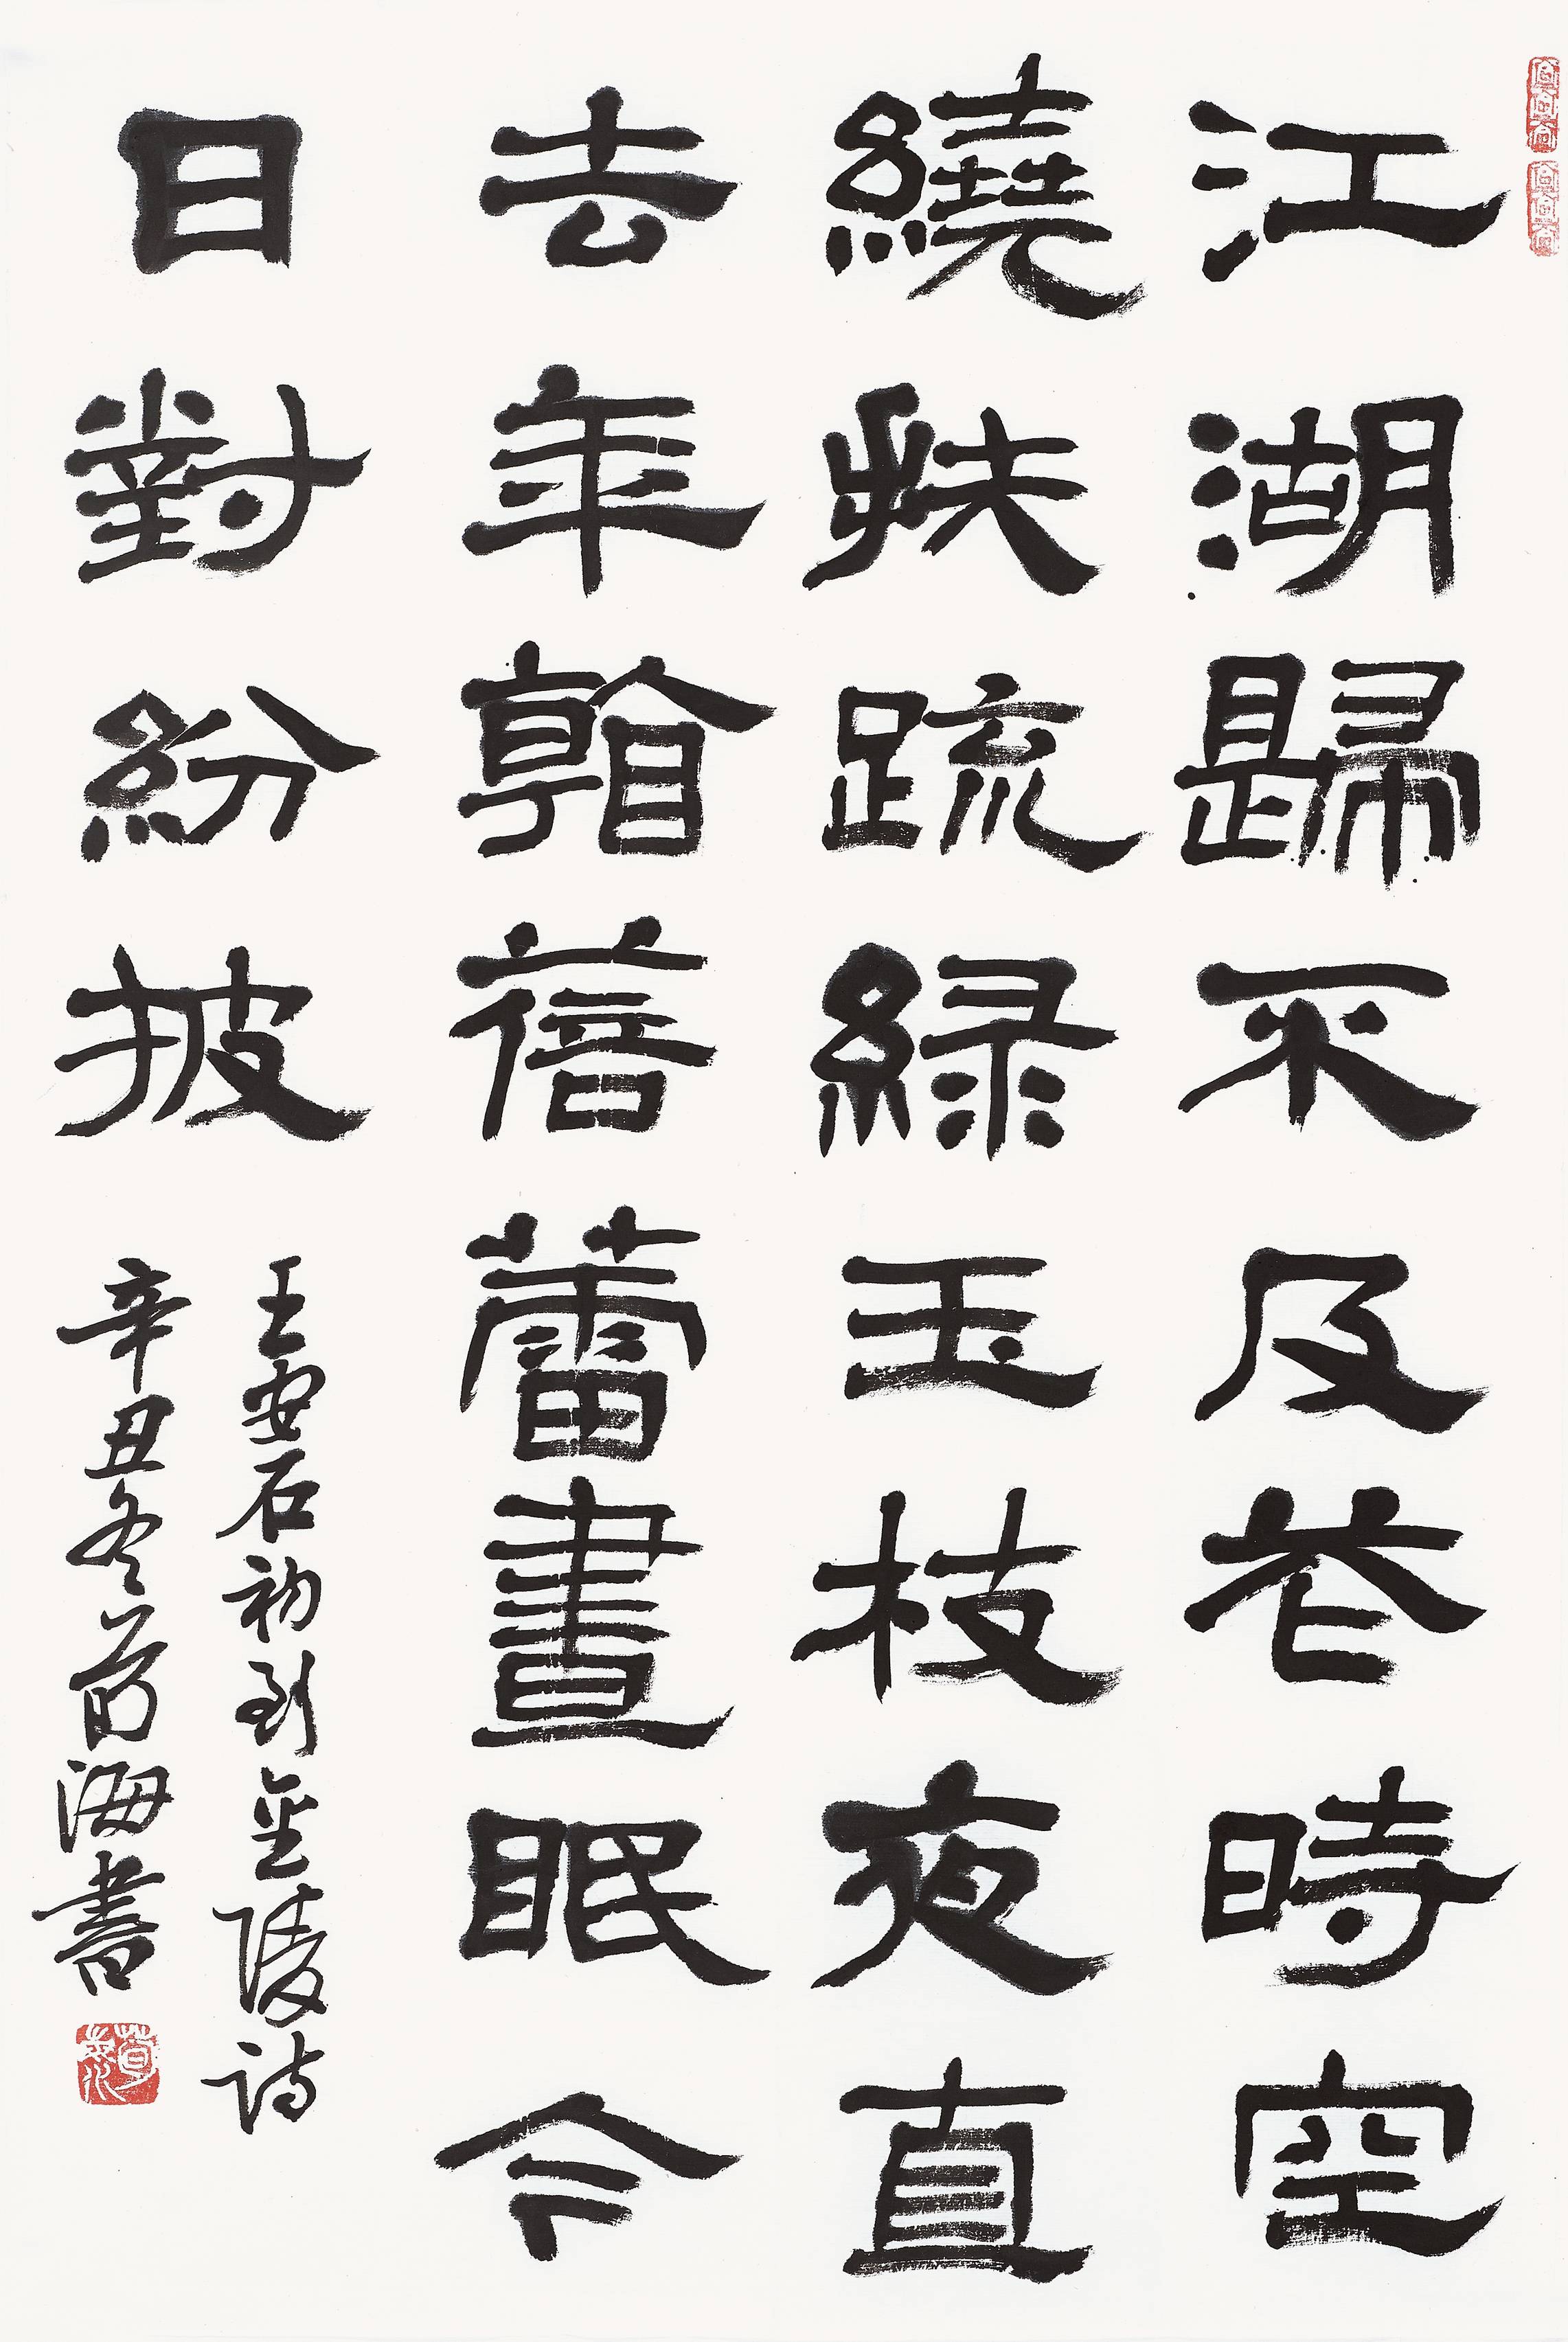 江湖歸不及花時空
繞扶疏緑玉枝夜直
去年看蓓蕾晝眠今
日對紛披
王安石初到金陵詩
辛丑冬海書